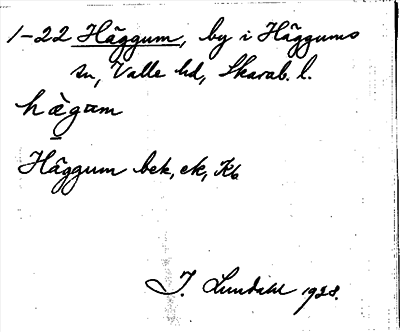 1-22 Häggum, by i Häggums
sn, Valle hd, Skarab. l.
hàgum
Häggum bek, ek, Kb
I. Lundahl 1928.